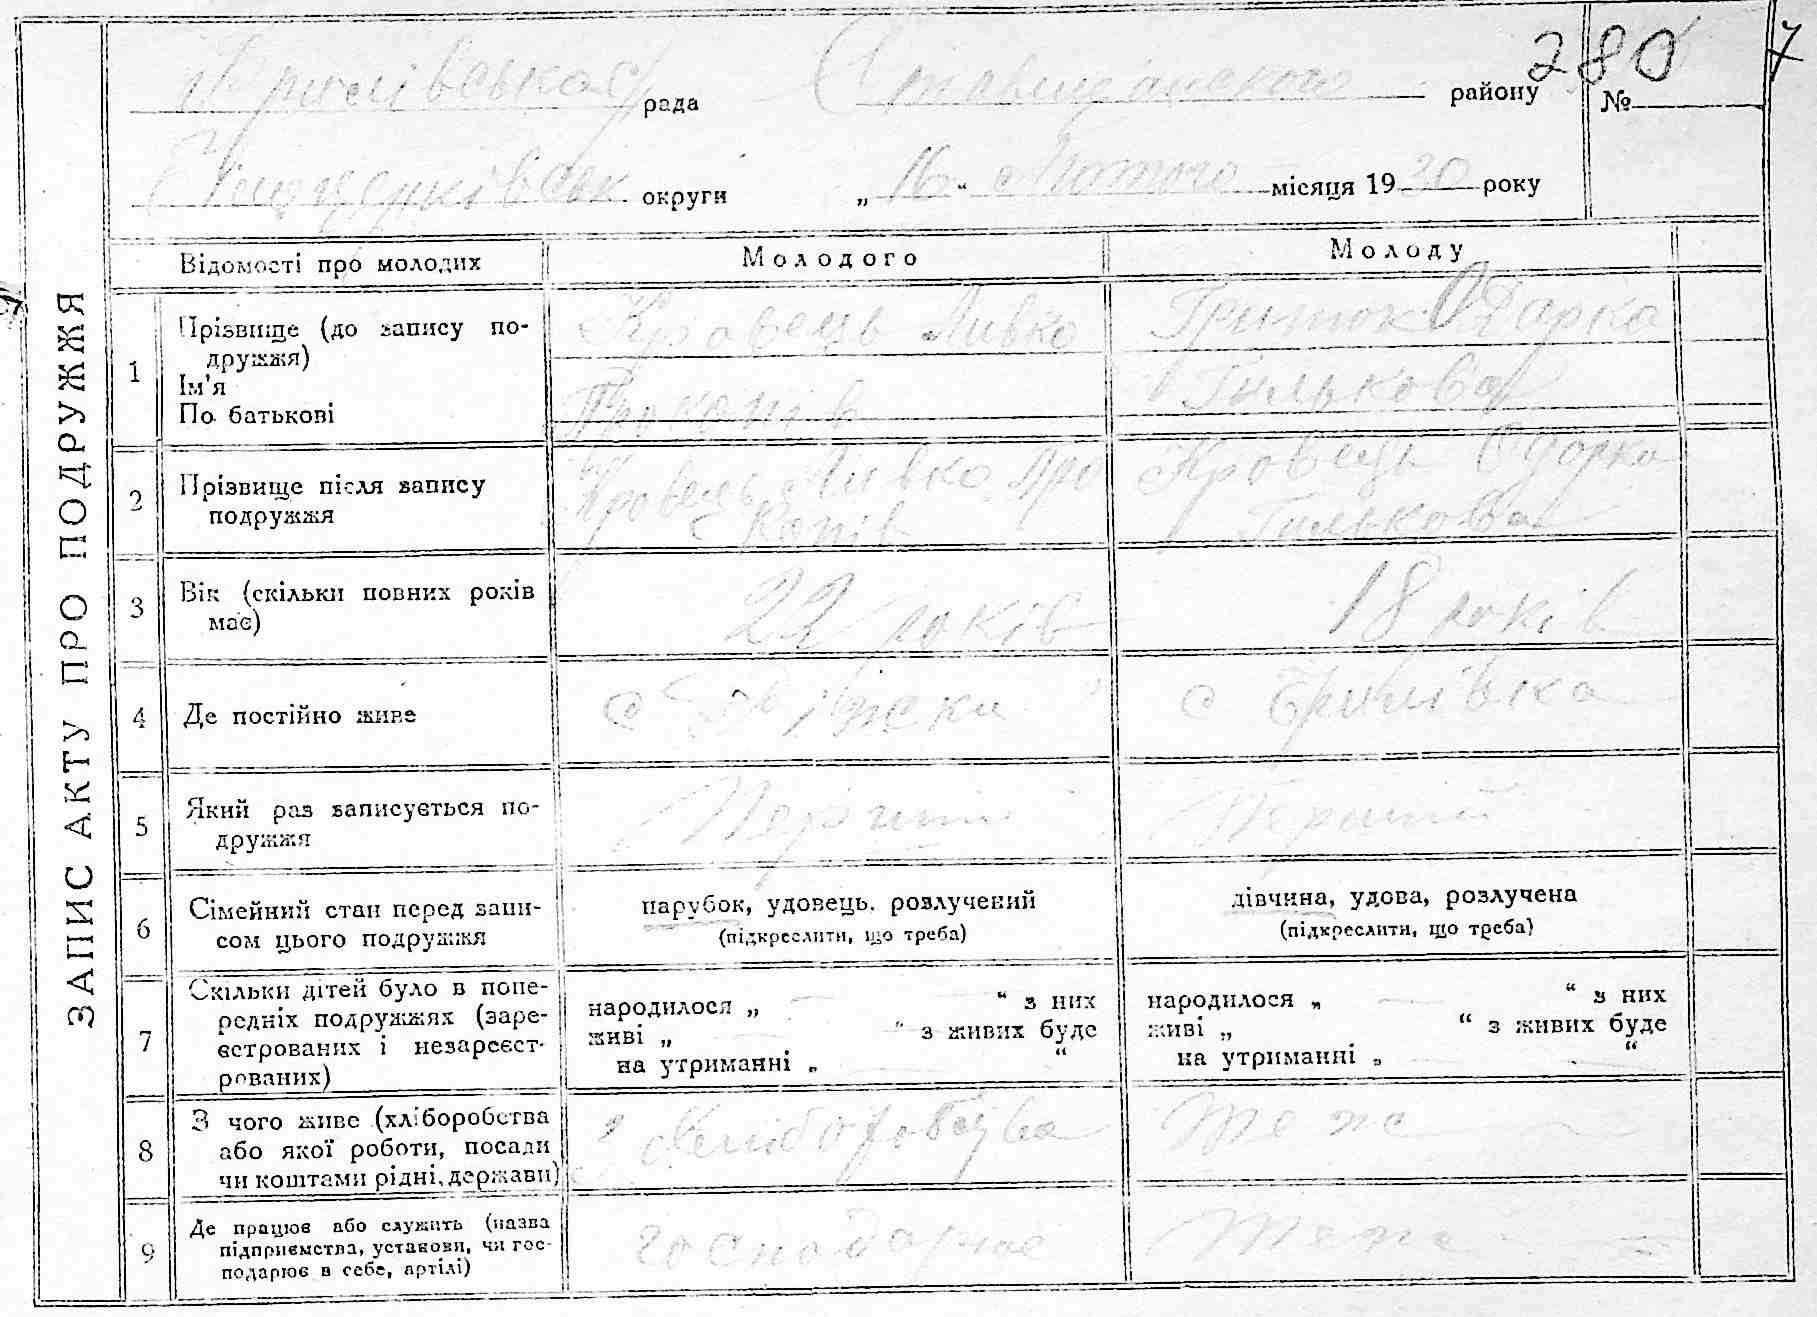 280 7
рада району №
округи „ 16 “ Лютого місяця 19 30 року
ЗАПИС АКТУ ПРО ПОДРУЖЖЯ
Відомості про молодих Молодого Молоду
1 Прізвище (до запису по-
дружжя)
Ім'я
По батькові
Кровець Ливко
Прокопів
Одарка
Гилькова
2 Прізвище після запису
подружжя
Кровець Ливко Про
копів
Кровець Одарка
Гилькова
3 Вік (скільки повних років
має)
22 років 18 років
4 Де постійно живе с с Брилівка
5 Який раз записується по-
дружжя
Перший Перший
6 Сімейний стан перед запи-
сом цього подружжя
парубок, удовець, розлучений
(підкреслити, що треба)
дівчина, удова, розлучена
(підкреслити, що треба)
7 Скільки дітей було в попе-
редніх подружжях (заре-
єстрованих і незареєст-
рованих)
народилося „ “ з них
живі „ “ з живих буде
на утриманні „ “
народилося „ “ з них
живі „ “ з живих буде
на утриманні „ “
8 З чого живе (хліборобства
або якої роботи, посади
чи коштами рідні, держави)
теж
9 Де працює або служить (назва
підприємства, установи, чи гос-
подарює в себе, артілі)
господарює теж